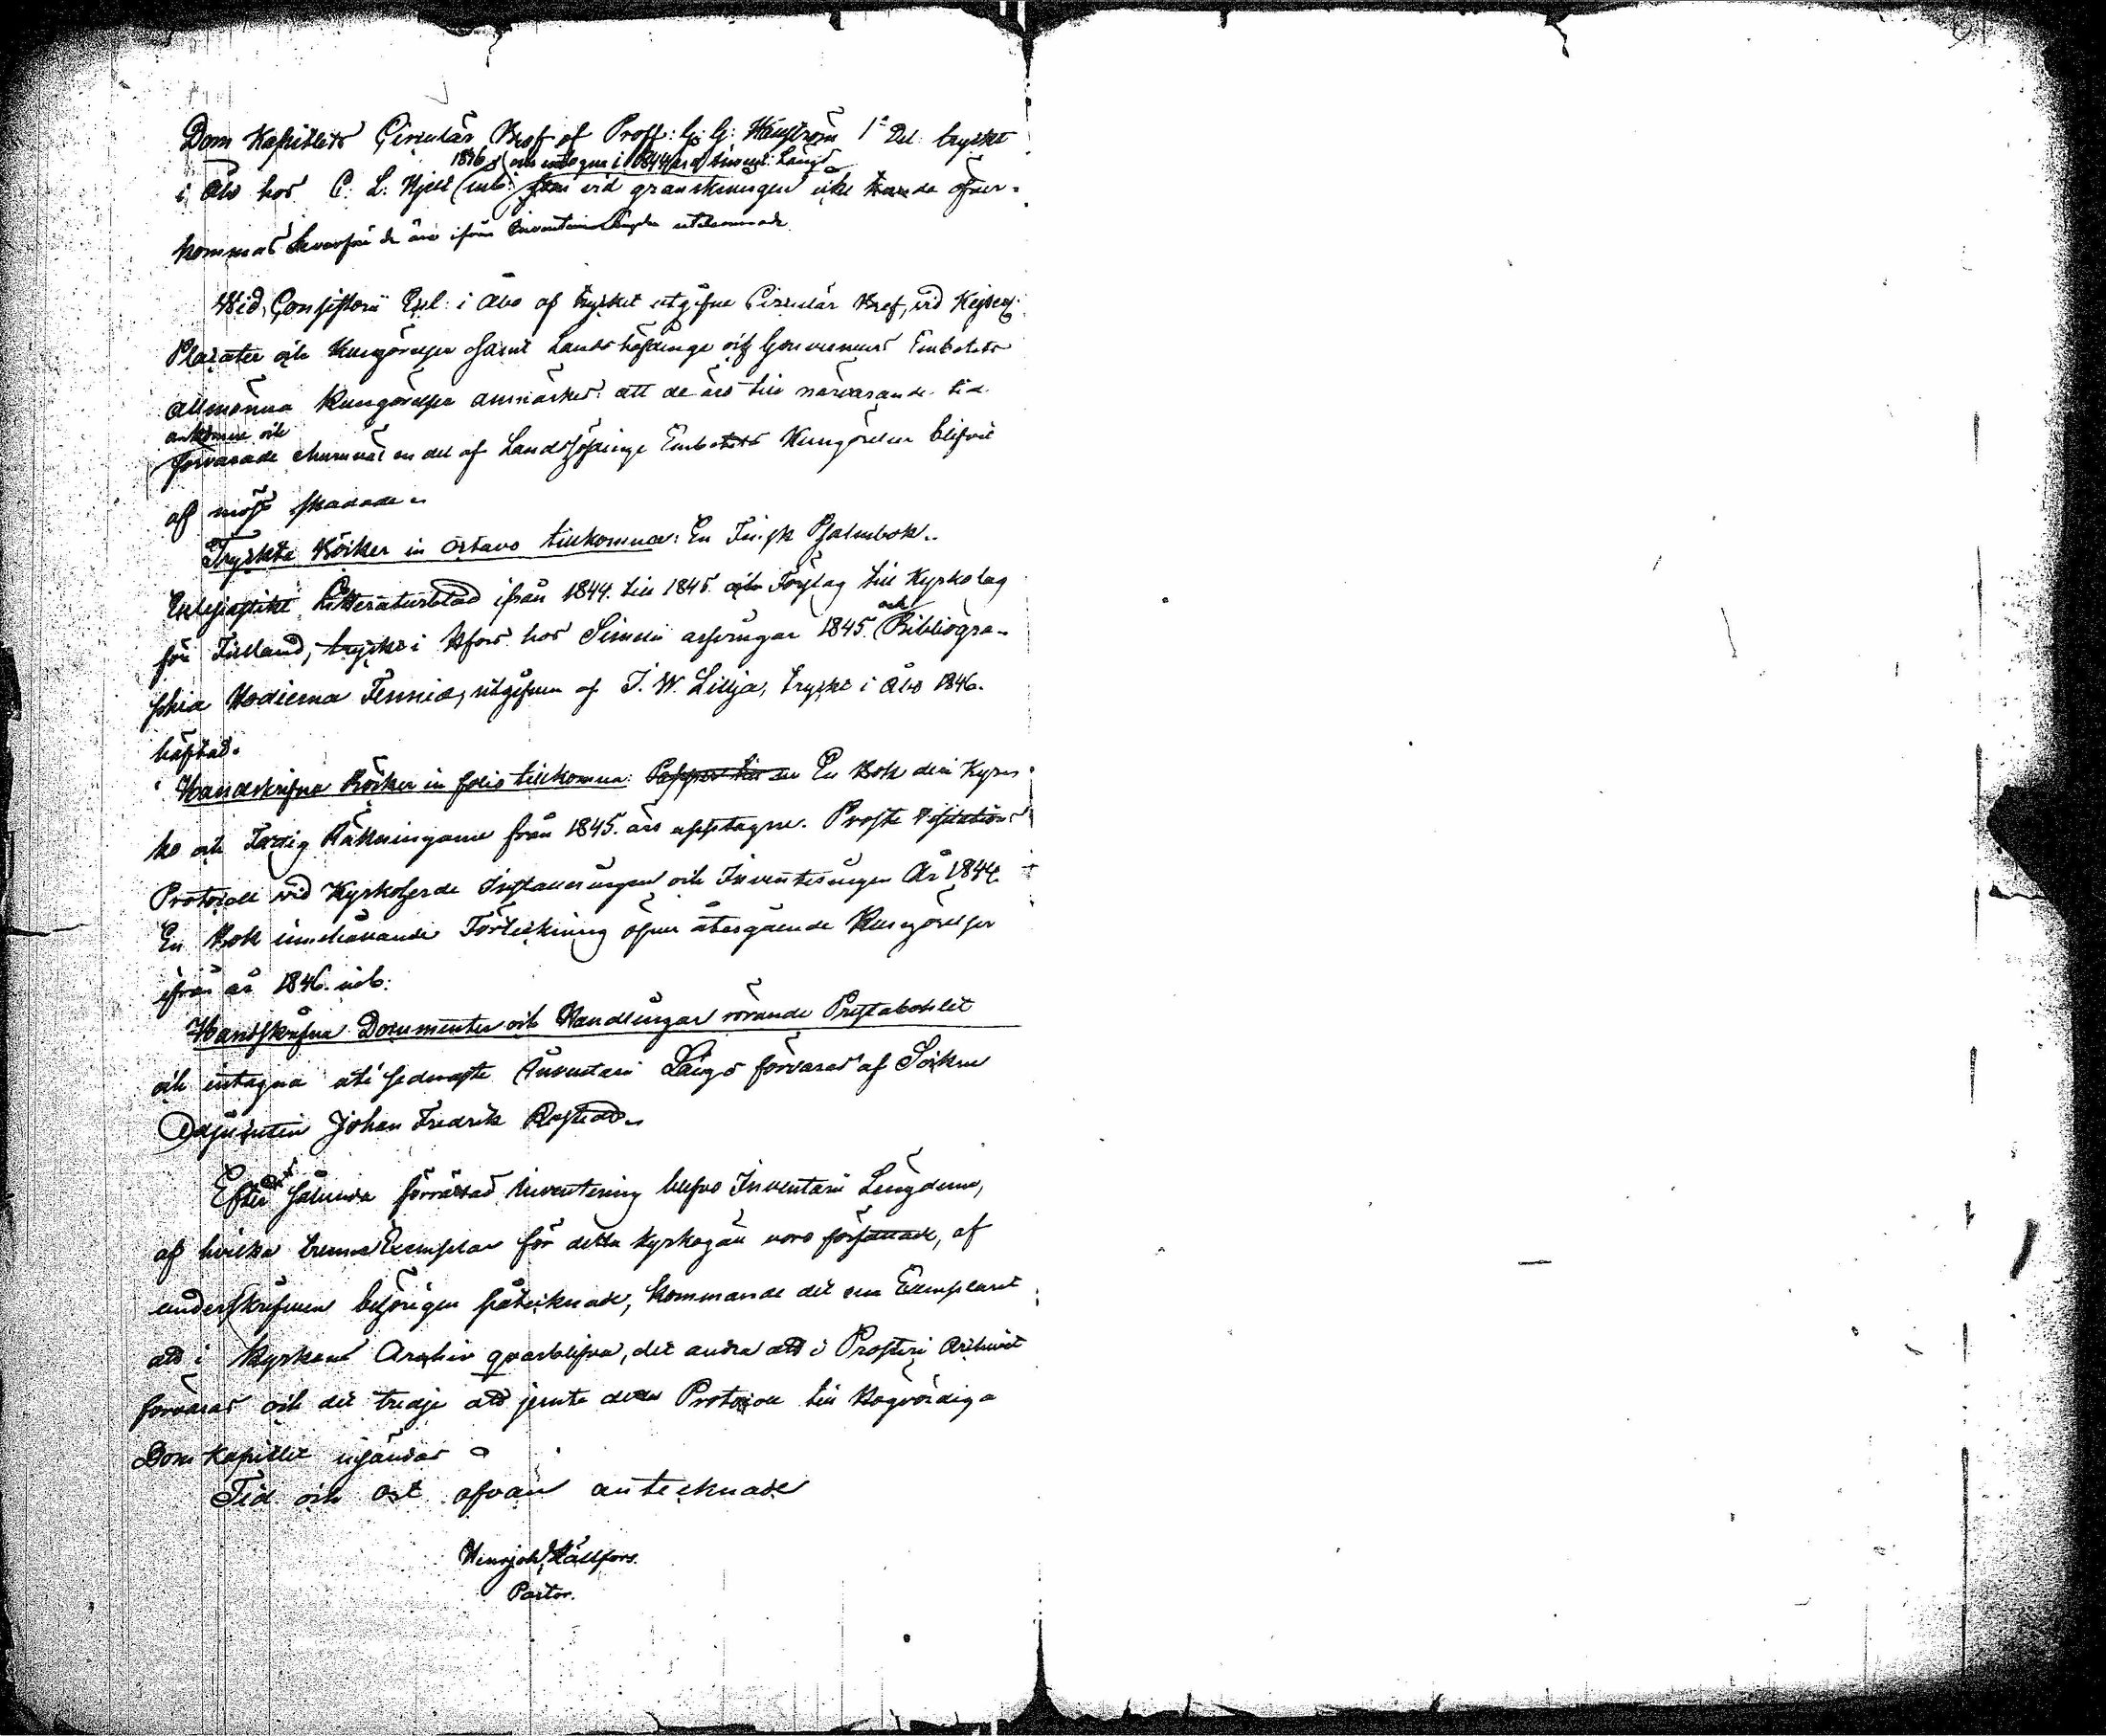 Dom Kapitlets Circulär Bref af Proff: G: G: Hällström 1a Del. tryckt
1836, som intagne i 1844 års Invent: Längd
i Åbo hos C. L. Hjelt (inb: vid granskningen icke kunde åter-
kommas hvarföre de äro ifrån Inventarii Längden uteslutande
Wid Consistorii Eccl: i Åbo af trycket utgifne Circulär Bref, vid Kejserl:
Placater och Kungörelser samt Landshöfdinge och Gouverneurs Embetets
allmänna Kungörelser anmärkes: att de äro till närvarande tid
ankomne och
förvarade ehuruväl en del af Landshöfdinge Embetets Kungörelser blifvit
af möss skadade.
Tryckta Böcker in octavo tillkomna: En Finsk Psalmbok..
Ecclesiastikt Litteraturblad ifrån 1844. till 1845. och Förslag till Kyrkolag
för Finland, tryckt i Hfors hos Simelii arfvingar 1845. och Bibliogra-
phia Hodierna Fennica, utgifven af J. W. Lillja, tryckt i Åbo 1846.
häftad.
Handskrifna Böcker in folio tillkomna: En Bok deri Kyrc-
ko och Fattig Räkningarne från 1845. äro upptagne. Proste Visitations
Protocoll vid Kyrkoherde Installeringen och Inventeringen År 1844
En Bok innehållande Förteckning öfver återgående Kungörelser
ifrån år 1846. inb:
Handskrifna Documenter och Handlingar rörande Prestabohlet
och intagna uti sednaste Inventarii Längd förvaras af Socknen
Adjuncten Johan Fredrik
Efter det sålunda förrättad Inventering blefvo Inventarii Längderne,
af hvilka trenne Exemplar för detta Kyrkogäll voro författade, af
underskrifven behörigen påteiknade, kommande det ena Exemplaret
att i Kyrkans Archiv qvarblifva, det andra att i Prosteri Archivet
förvaras och det tredje att jemte detta Protocoll till Högvördiga
Dom Kapitlet insändas
Tid och ort ofvan antecknade
Henr joh Hällfors.
Pastor.